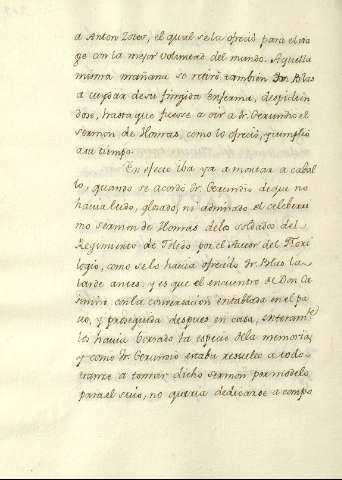 a Anton Zotes, el qual se la ofreció para el via
ge con la mejor voluntad del mundo. Aquella
misma mañana se retiró tambien Fr. Blas
a cuydar de su fingida enferma, despidien
dose, hasta que fuesse a oir a fr. Gerundio el
sermon de Honras, como lo ofreció, y cumplió
a su tiempo.
En efecto iba ya a montar a cabal
lo, quando se acordó fr. Gerundio de que no
havia leido, glosado, ni admirado el celeberri
mo sermon de Honras de los soldados del
Regimiento de Toledo por el Autor del Flori
logio, como se lo havia ofrecido Fr. Blas la
tarde antes: y es que el encuentro de Don Ca
simiro con la conversacion entablada en el pa
seo, y proseguida despues en casa, enteramte
le havia borrado la especie de la memoria;
y como fr. Gerundio estaba resuelto a todo
trance a tomar dicho sermon por modelo
para el suio, no queria dedicarse a compo